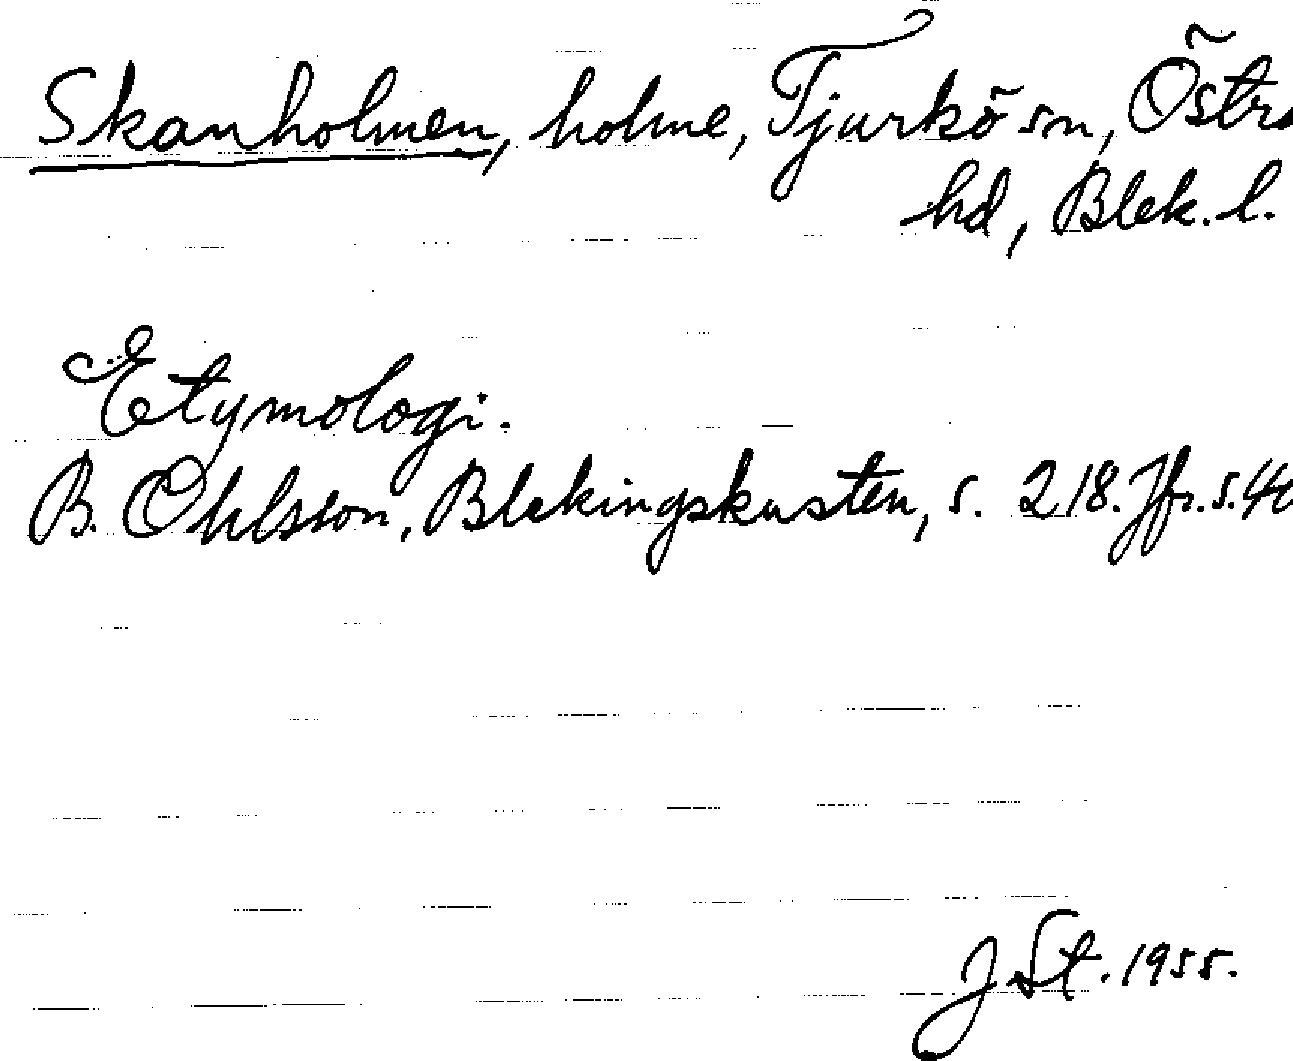 Skanholmen, holme, Tjurkö sn, Östra
hd, Blek. l.
Etymologi.
B. Ohlsson, Blekingskusten, s. 218. Jfr. s. 40
J St. 1955.